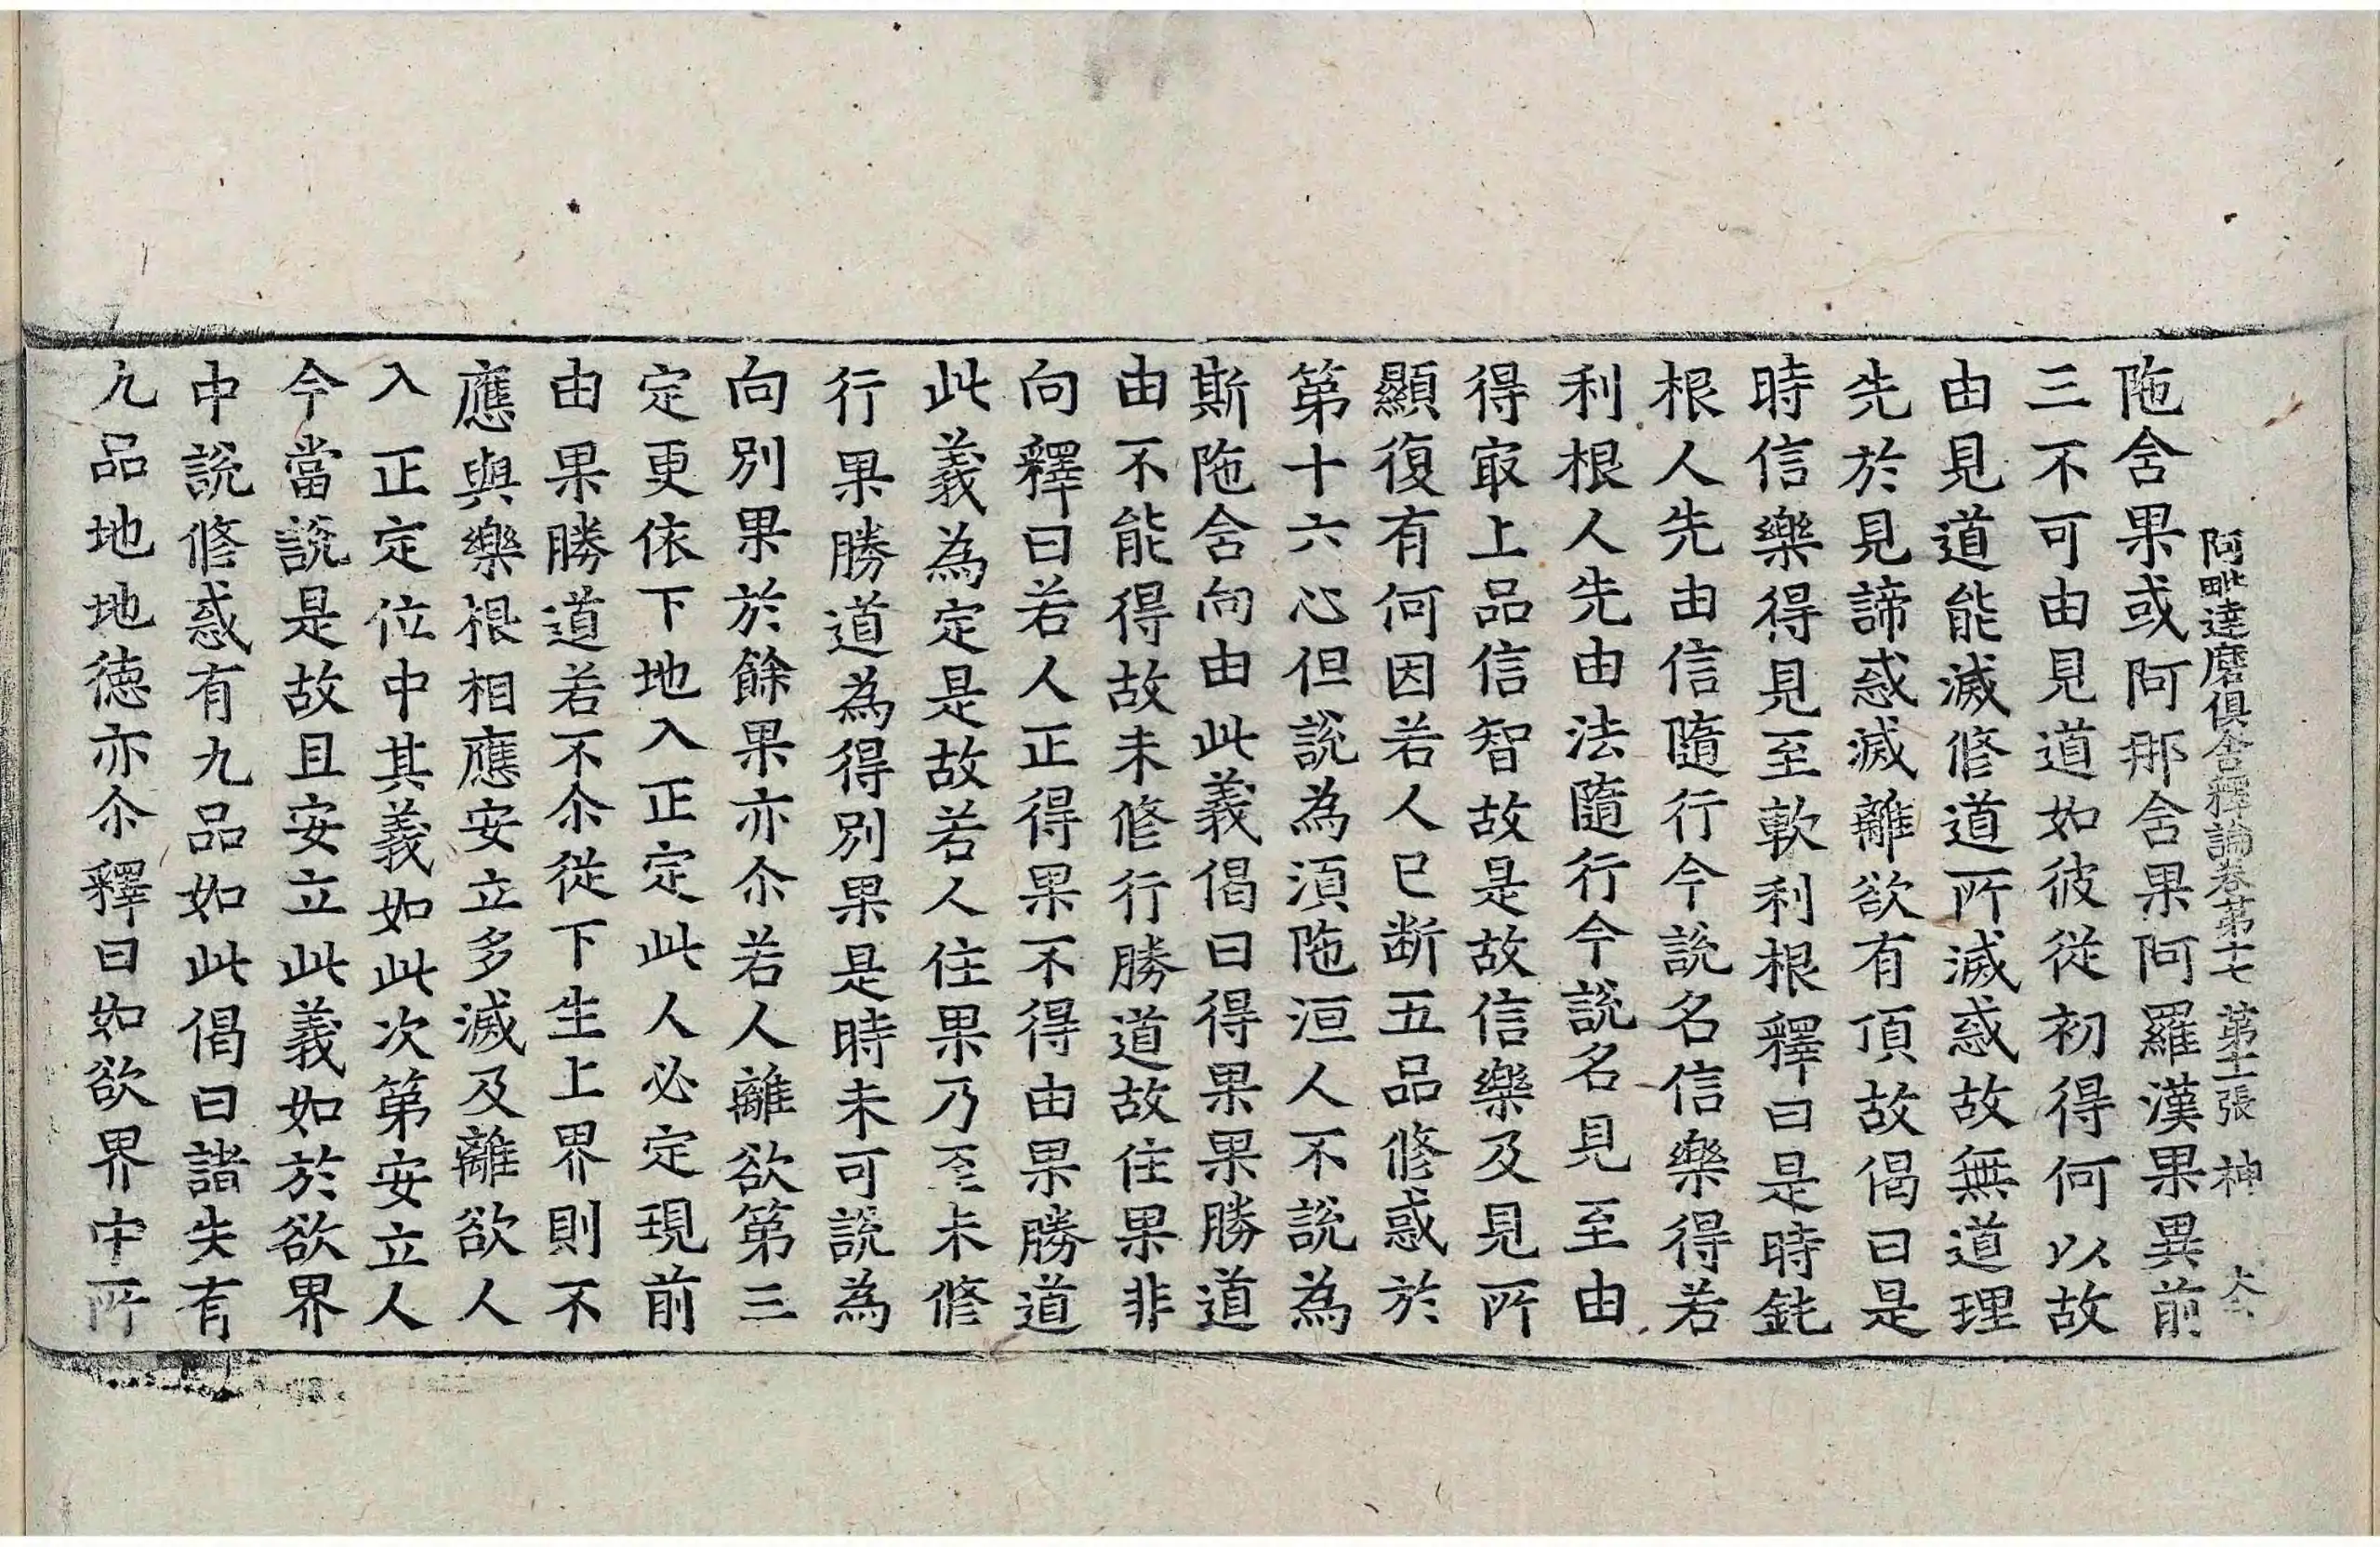 阿毗達磨俱舍釋論卷第十七 第十二張 神
陁舍果或阿那舍果阿羅漢果異前
三不可由見道如彼從初得何以故
由見道能滅修道所滅惑故無道理
先於見諦惑滅離欲有頂故偈曰是
時信樂得見至軟利根釋曰是時鈍
根人先由信隨行今說名信樂得若
利根人先由法隨行今說名見至由
得㝡上品信智故是故信樂及見所
顯復有何因若人已断五品修惑於
第十六心但說為湏陁洹人不說為
斯陁舍向由此義偈曰得果果勝道
由不能得故未修行勝道故住果非
向釋曰若人正得果不得由果勝道
此義為定是故若人住果乃至未修
行果勝道為得別果是時未可說為
向別果於餘果亦尒若人離欲第三
定更依下地入正定此人必定現前
由果勝道若不尒從下生上界則不
應與樂根相應安立多滅及離欲人
入正定位中其義如此次第安立人
今當說是故且安立此義如於欲界
中說修惑有九品如此偈曰諸失有
九品地地徳亦尒釋曰如欲界中所